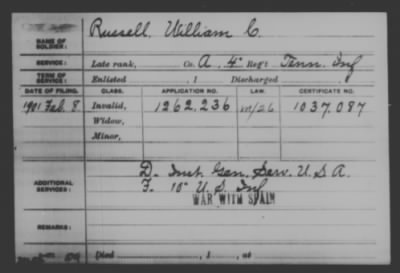 NAME OF SOLDIER: Russell, William C.
SERVICE: Late rank, Co. A, 4" Reg't Tenn. Inf
TERM OF SERVICE: Enlisted , 1 Discharged , 1
DATE OF FILING. CLASS. APPLICATION NO. LAW. CERTIFICATE NO.
1901 Feb. 8 Invalid, 1262,236 1037,087
Widow,
Minor,
ADDITIONAL SERVICES: D. Inst. Gen. Serv. U.S.A.
F. 10" U.S. Inf
WAR WITH SPAIN
REMARKS:
Died , 1 , at